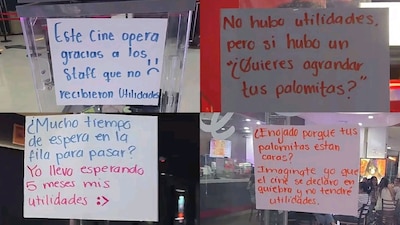 Este Cine opera
gracias a los
Staff que no
recibieron Utilidades
No hubo utilidades,
pero si hubo un
"¿Quieres agrandar
tus palomitas?"
¿Mucho tiempo
de espera en la
fila para pasar?
Yo llevo esperando
5 meses mis
utilidades :>
¿Enojado porque tus
palomitas estan
caras?
Imaginate yo que
el cine se declaro en
quiebro y no tendré
utilidades.